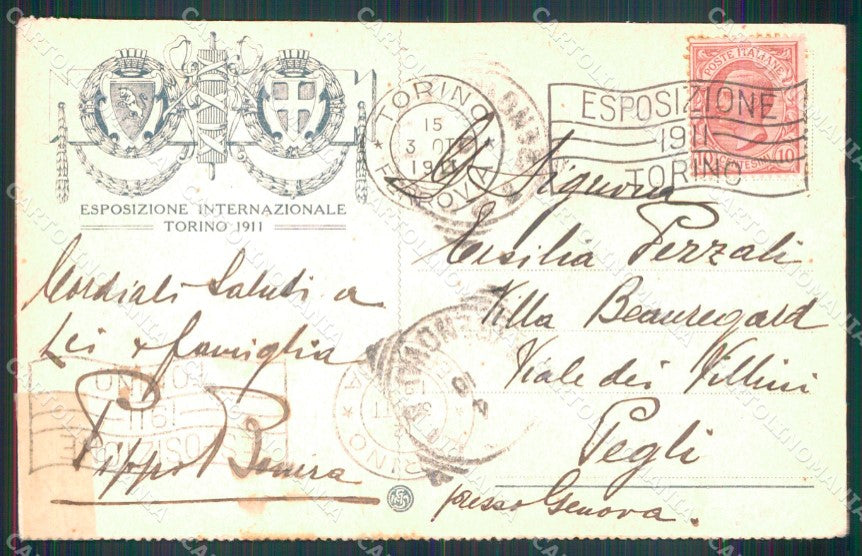 ESPOSIZIONE INTERNAZIONALE
TORINO 1911
Cordiali Saluti a
Lei e famiglia
Pippo
TORINO
15
3 OTT
1911
FERROVIA
ESPOSIZIONE
1911
TORINO
POSTE ITALIANE
CENTESIMI 10
Signora
Cesilia Pezzali
Villa Beauregard
Viale dei Villini
Pegli
presso Genova.
ESPOSIZIONE
1911
TORINO
CARTOLINOMANIA